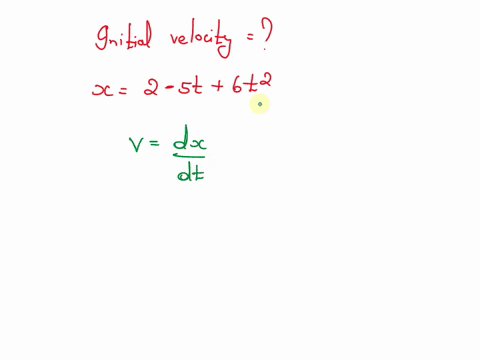 Initial velocity = ?
x = 2 - 5t + 6t²
v = dx/dt